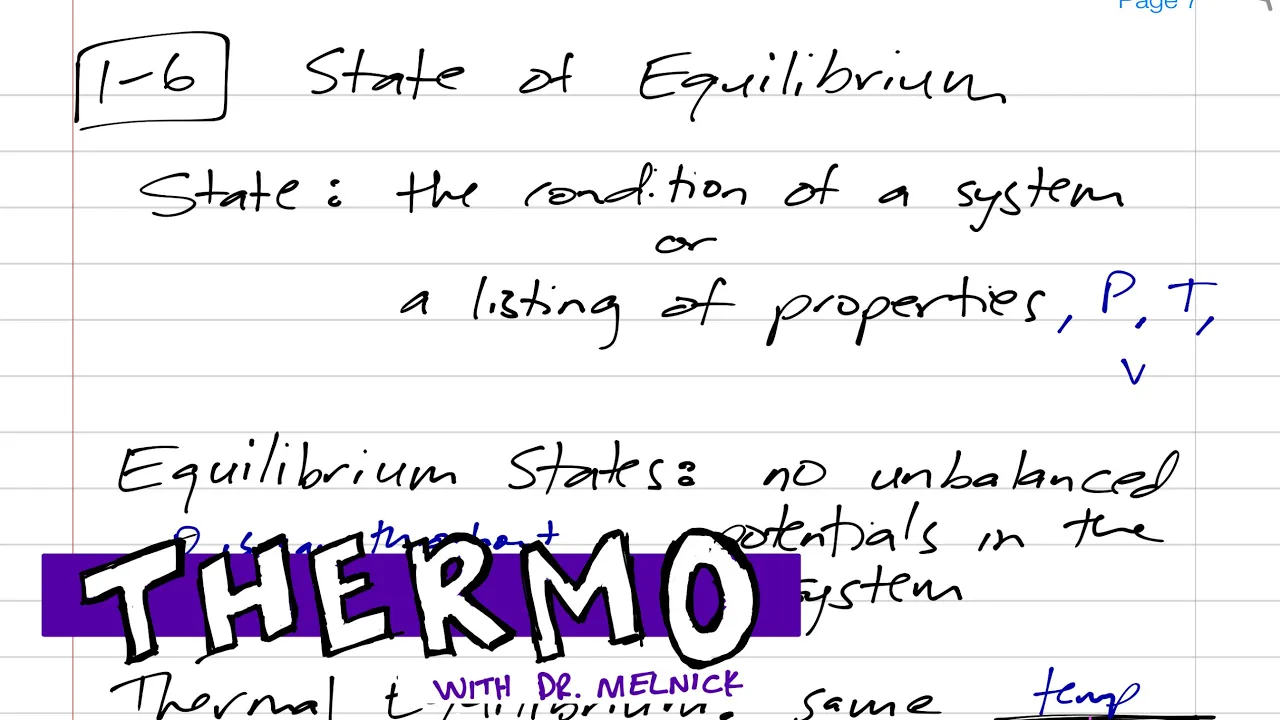 Page 7
1-6 State of Equilibrium
State: the condition of a system
or
a listing of properties, P, T,
v
Equilibrium States: no unbalanced
potentials in the
system
THERMO
WITH DR. MELNICK
Thermal same temp